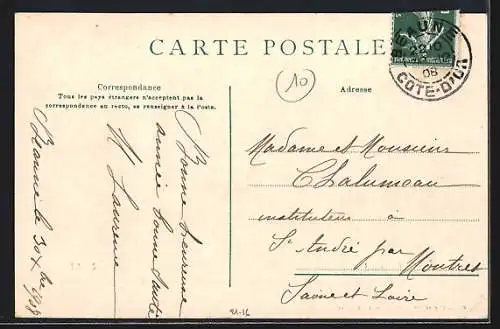 CARTE POSTALE
Correspondance
Tous les pays étrangers n'acceptent pas la
correspondance au recto, se renseigner à la Poste.
Adresse
10
BEAUNE
08
COTE-D'OR
Bonne heureuse
année bonne santé
Beaune le 30 Xbre
Madame et Monsieur
Chalumeau
instituteur à
St André par
Montret
Saône et Loire
21-16